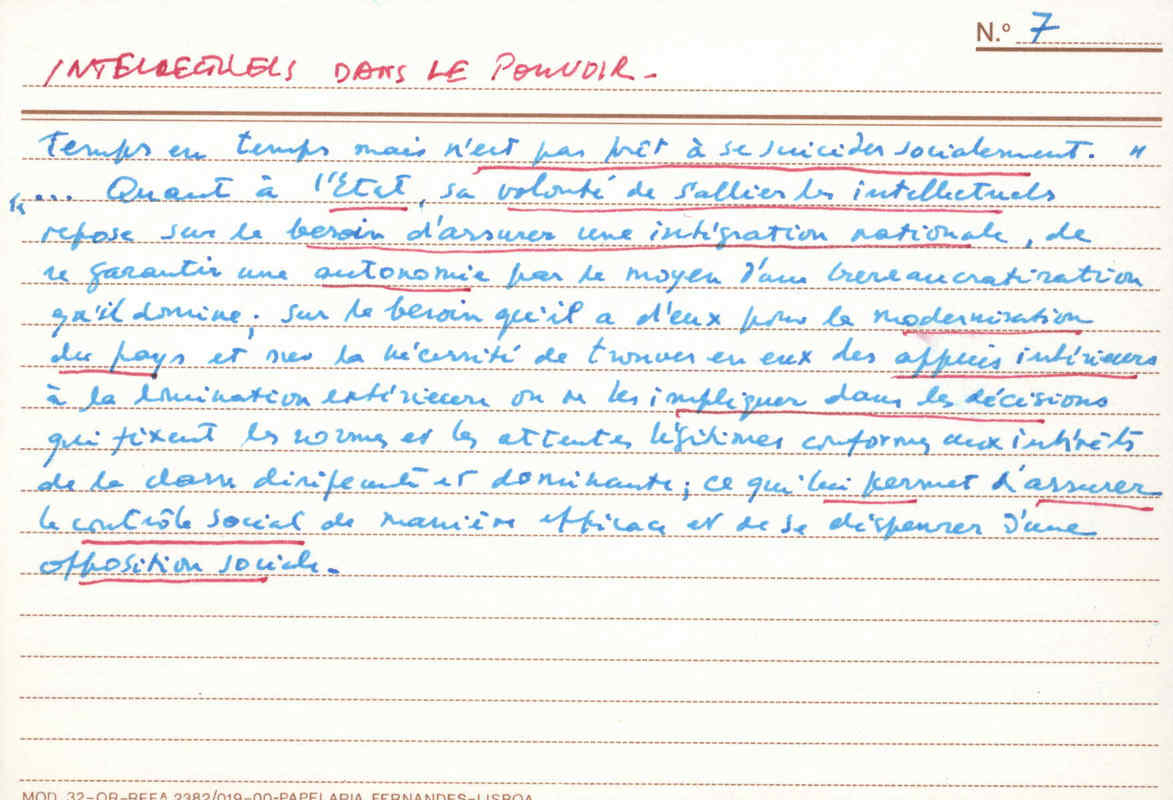 N.º 7
INTELLECTUELS DANS LE POUVOIR.
temps en temps mais n'est pas prêt à se suicider socialement. "
"... Quant à l'Etat, sa volonté de s'allier les intellectuels
repose sur le besoin d'assurer une intégration nationale, de
se garantir une autonomie par le moyen d'une bureaucratisation
qu'il domine; sur le besoin qu'il a d'eux pour la modernisation
du pays et sur la nécessité de trouver en eux des appuis intérieurs
à la domination extérieure ou de les impliquer dans les décisions
qui fixent les normes et les attentes légitimes conformes aux intérêts
de la classe dirigeante et dominante; ce qui lui permet d'assurer
le contrôle social de manière efficace et de se dispenser d'une
opposition sociale.
MOD. 32-OR-REFA 2382/019-00-PAPELARIA FERNANDES-LISBOA